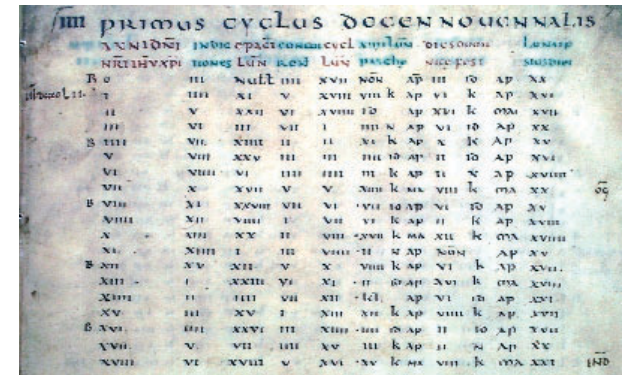 IIII PRIMUS CYCLUS DECENNOUENNALIS
ANNI DÑI INDIC EPACT CONCUR CYCL XIIII LUÑ DIES DOMIÑ LUNA IP
NRI IHU XPI TIONES LUÑ RENT LUÑ PASCHE NICE FEST SIUS DIEI
B O III NULL IIII XVII NOÑ AP III ID AP XX
I IIII XI V XVIII VIII K AP VI K AP XVI
II V XXII VI XVIIII ID AP XVI K MAI XVII
III VI III VII I IIII N AP VI ID AP XX
B IIII VII XIIII II II XI K AP X K AP XV
V VIII XXV III III IIII ID AP II ID AP XVI
VI VIIII VI IIII IIII III K AP II N AP XVIIII
VII X XVII V V XIIII K MA VIII K MA XX
B VIII XI XXVIII VII VI VII ID AP VI ID AP XV
VIIII XII VIIII I VII VI K AP II K AP XVIII
X XIII XX II VIII XVII K MA XII K MA XVIIII
XI XIIII I III VIIII II N AP NOÑ AP XV
B XII XV XII V X VIIII K AP VI K AP XVII
XIII I XXIII VI XI II ID AP XVI K MA XVIII
XIIII II IIII VII XII KL AP VI ID AP XXI
XV III XV I XIII XII K AP VIIII K AP XVII
B XVI IIII XXVI III XIIII ID AP II ID AP XVII
XVII V VII IIII XV IIII K AP II N AP XX
XVIII VI XVIII V XVI XV K MA VIII K MA XXI